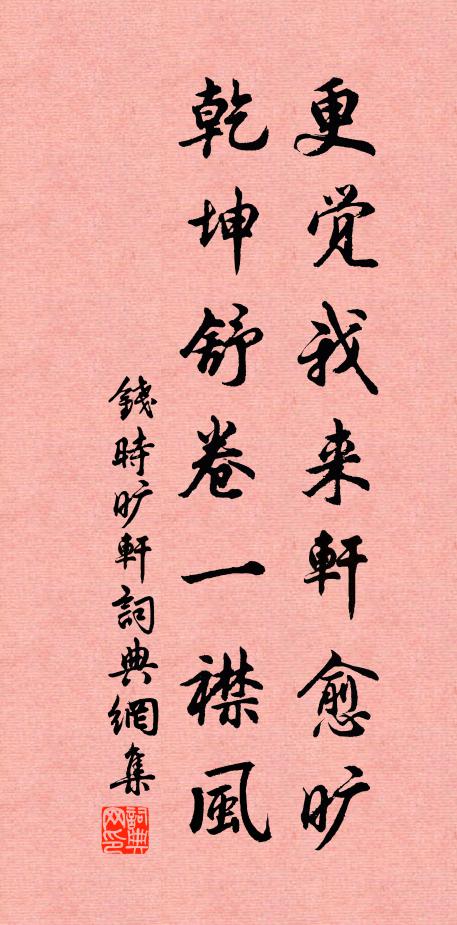 更觉我来軒愈旷
乾坤舒卷一襟風
錢時旷軒詞典網集
詞典网印